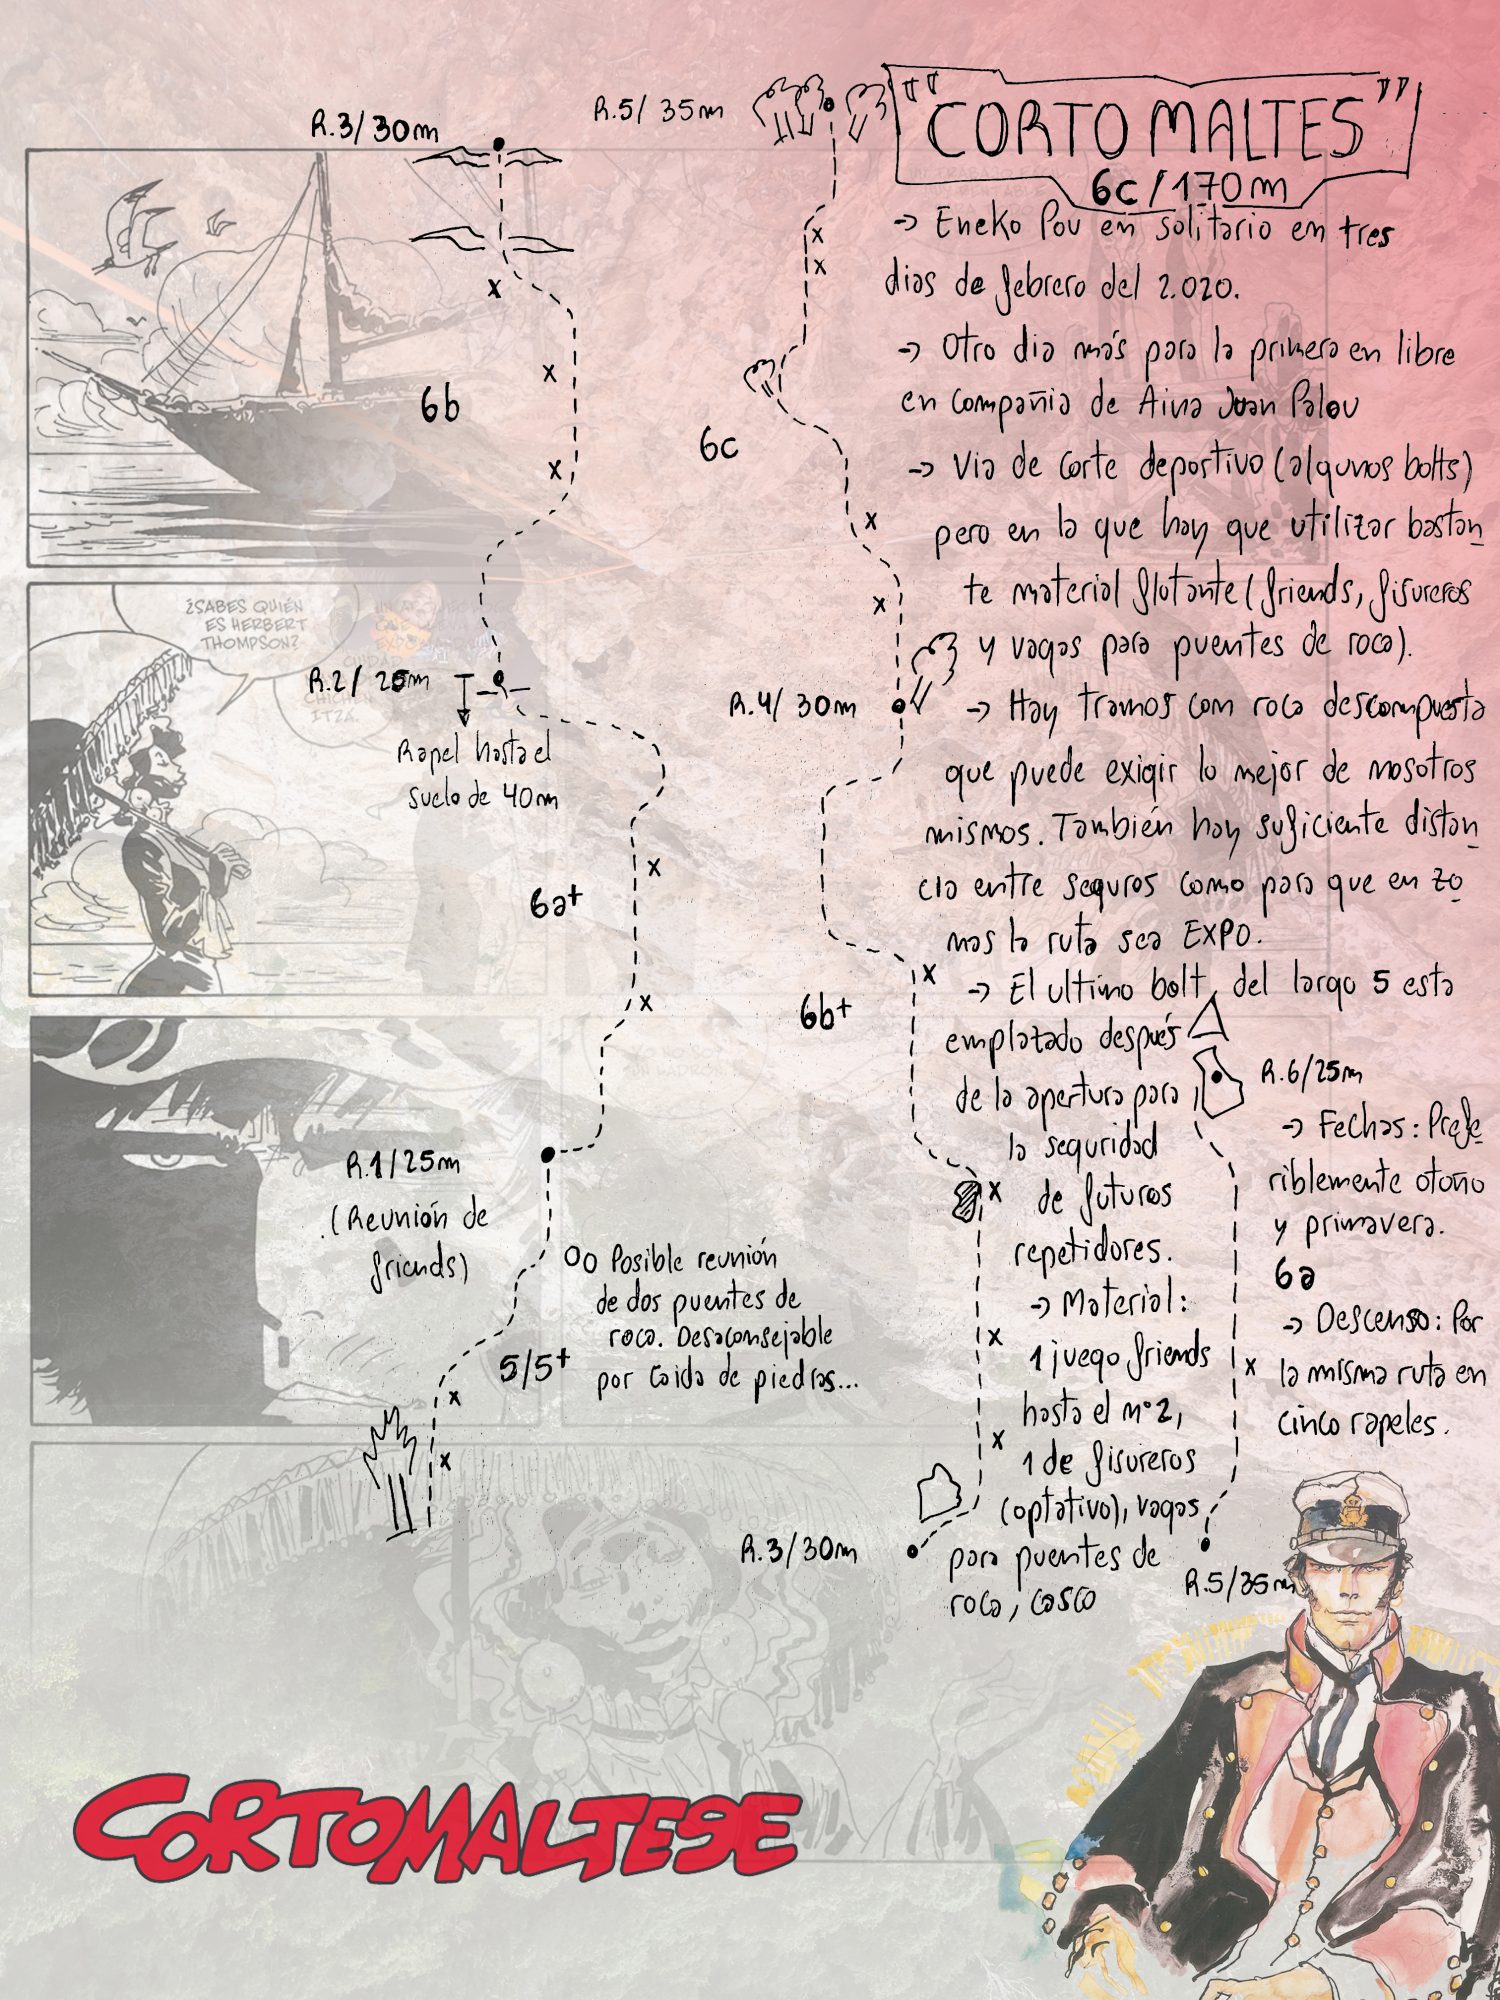 "CORTO MALTES"
6c/170m
→ Eneko Pou en solitario en tres
dias de febrero del 2.020.
→ Otro dia más para la primera en libre
en compañia de Aina Juan Palou
→ Via de corte deportivo (algunos bolts)
pero en la que hay que utilizar bastan
te material flotante (friends, fisureros
y vagas para puentes de roca).
→ Hay tramos con roca descompuesta
que puede exigir lo mejor de nosotros
mismos. También hay suficiente distan
cia entre seguros como para que en zo
nas la ruta sea EXPO.
→ El ultimo bolt, del largo 5 esta
emplazado después
de la apertura para
la seguridad
de futuros
repetidores.
→ Material:
1 juego friends
hasta el nº2,
1 de fisureros
(optativo), vagas
para puentes de
roca, casco
R.6/25m
→ Fechas: Prefe
riblemente otoño
y primavera.
6a
→ Descenso: Por
la misma ruta en
cinco rapeles.
R.5/35m
R.3/30m
6b
R.2/25m
Rapel hasta el
suelo de 40m
6a+
R.1/25m
(Reunión de
friends)
Posible reunión
de dos puentes de
roca. Desaconsejable
por caida de piedras...
5/5+
R.5/35m
6c
R.4/30m
6b+
R.3/30m
¿SABES QUIÉN
ES HERBERT
THOMPSON?
CORTOMALTESE